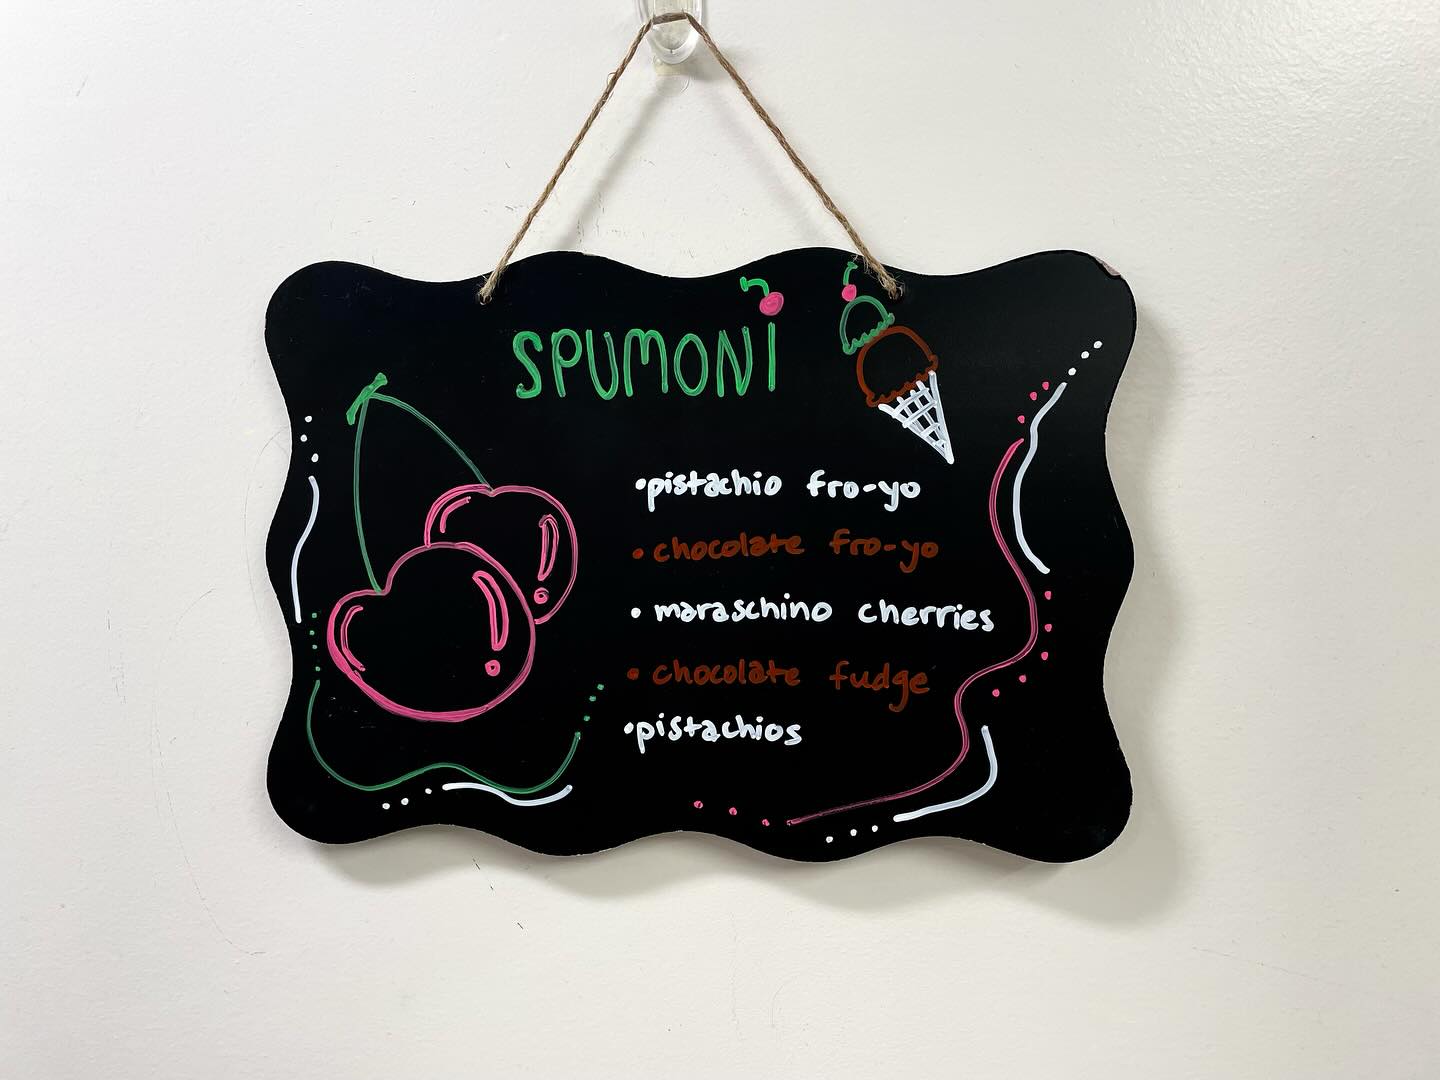 SPUMONI
•pistachio fro-yo
• chocolate fro-yo
• maraschino cherries
• chocolate fudge
•pistachios